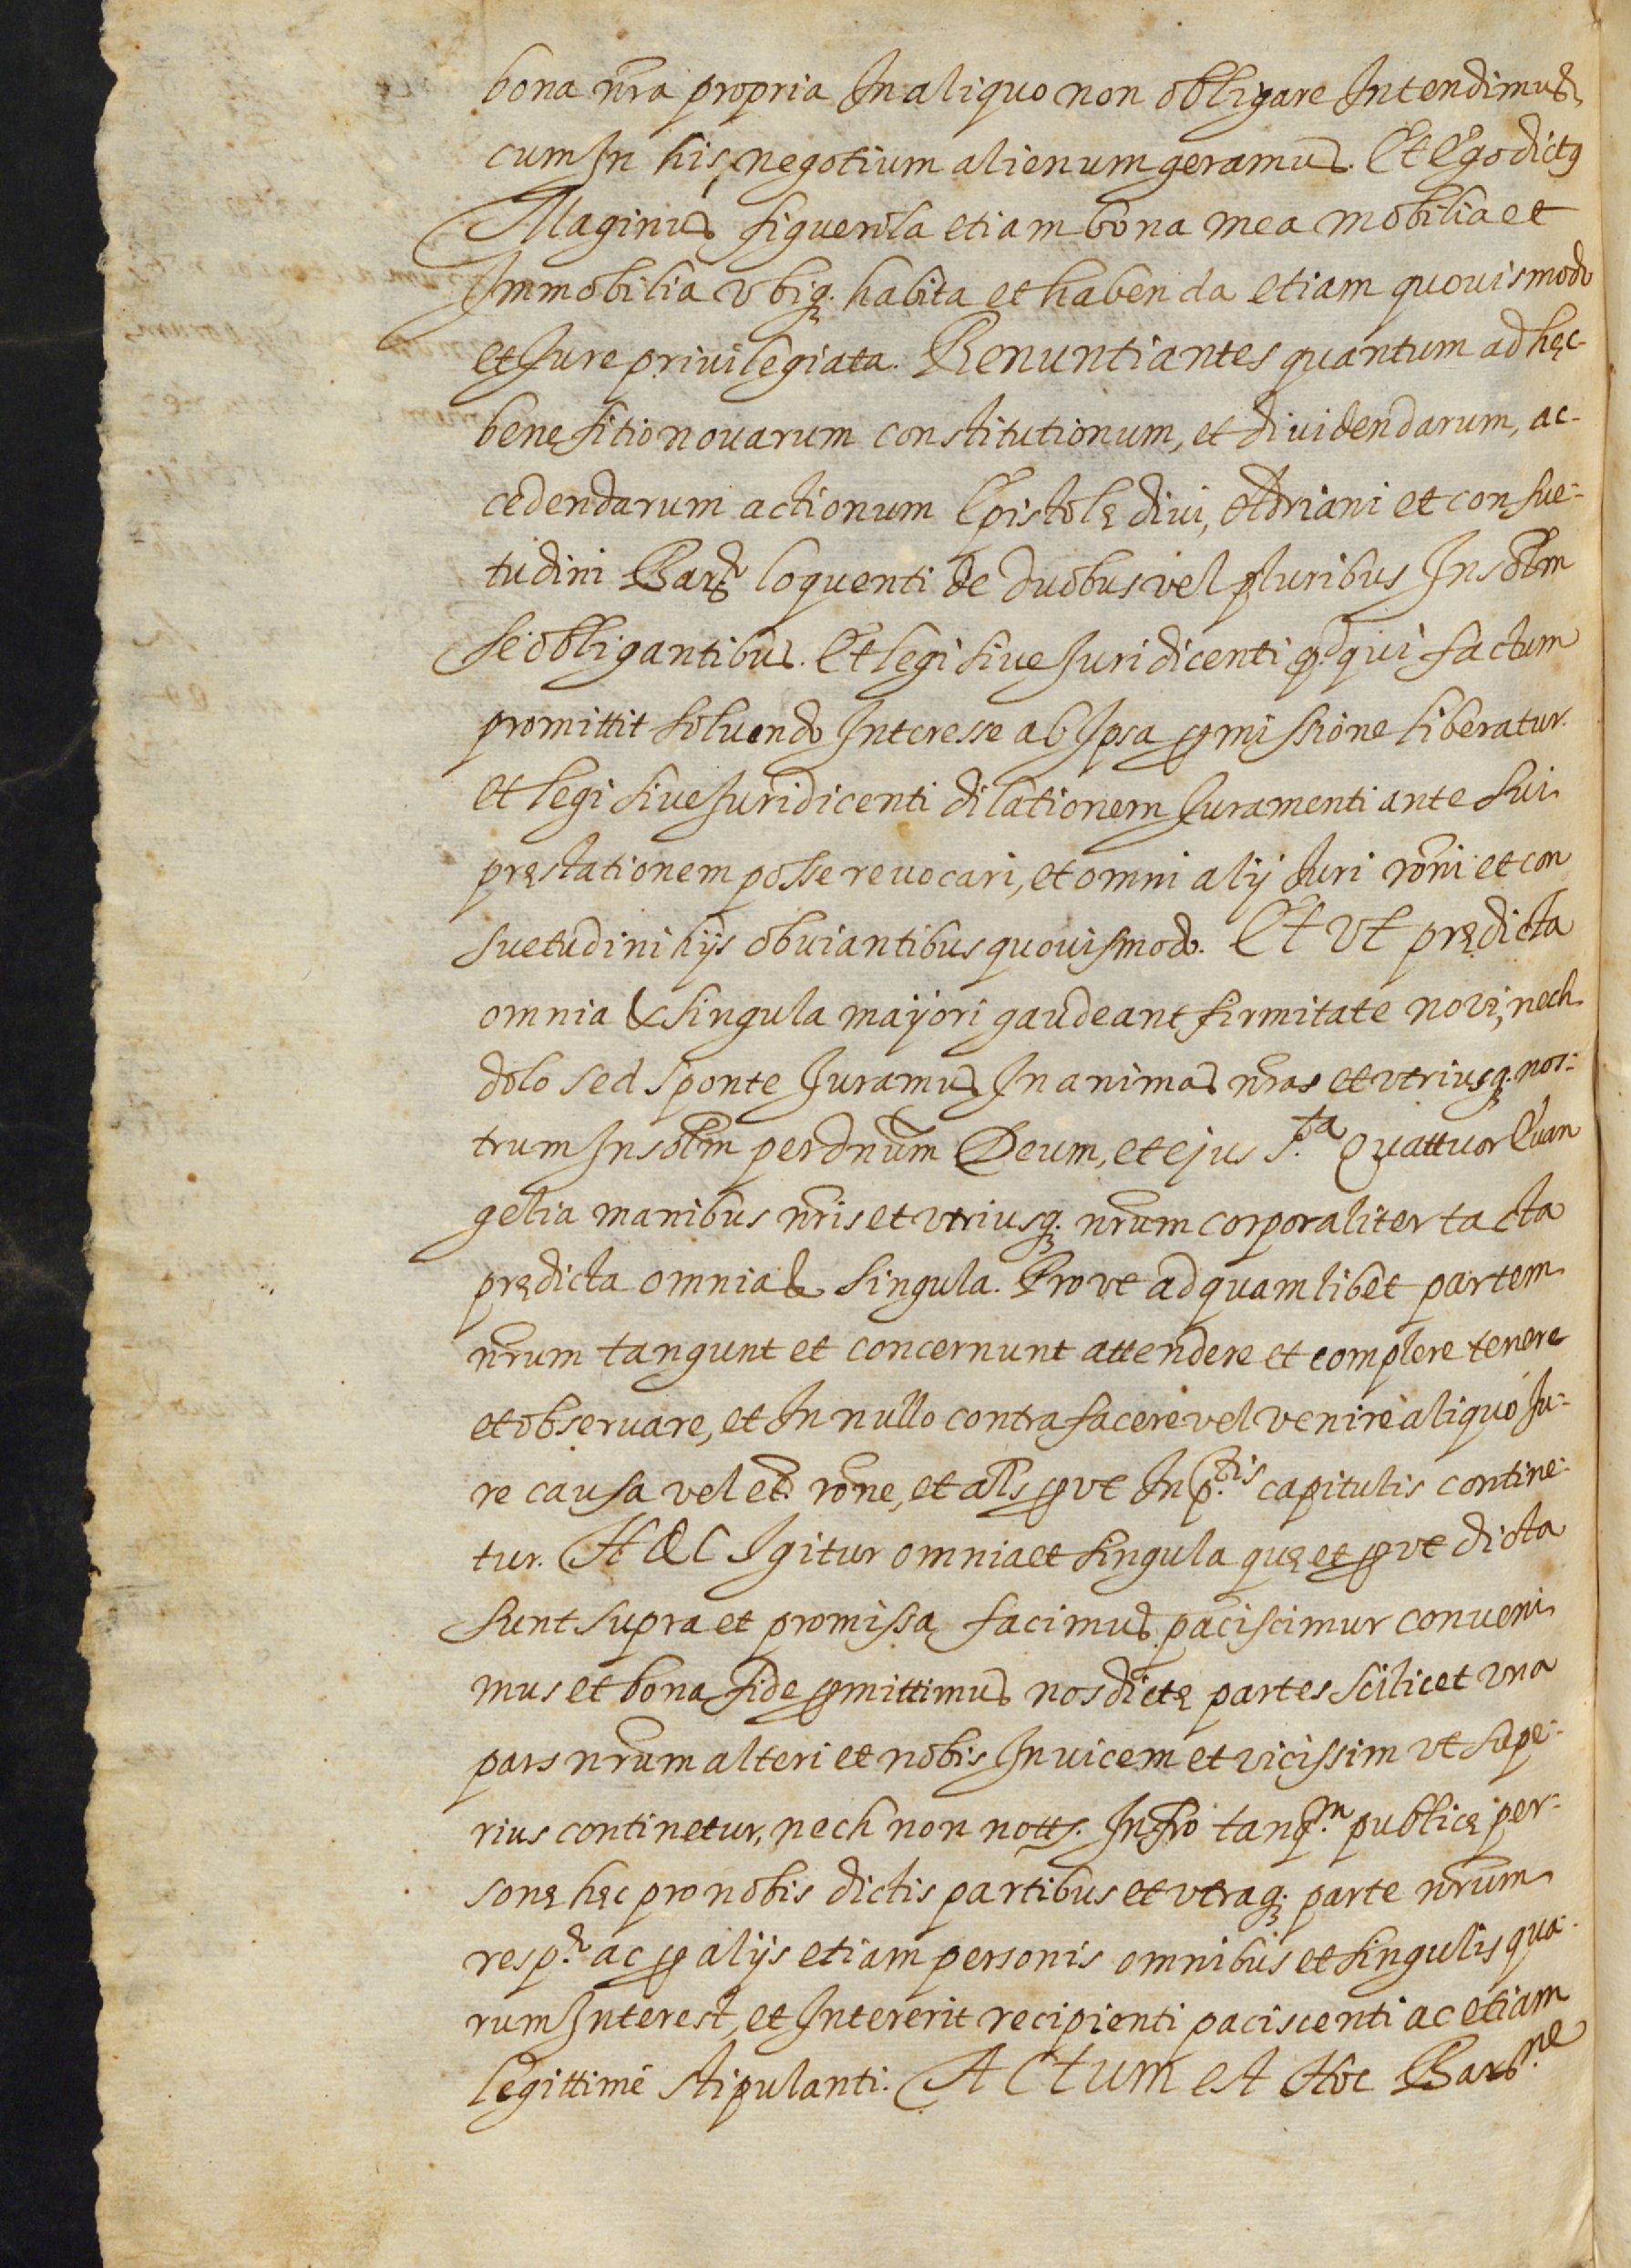 bona nr̃a propria In aliquo non obligare Intendimus,
cum In his negotium alienum geramus. Et Ego dictꝯ
Maginus figuerola etiam bona mea mobilia et
Immobilia vbiqꝫ. habita et habenda etiam quouismodo
et Jure priuilegiata. Renuntiantes quantum ad hęc
benefitio nouarum constitutionum, et diuidendarum, ac-
cedendarum actionum Epistolę diui, Adriani et consue-
tudini Barñ loquenti de duobus vel pluribus In sol̃m
se obligantibus. Et legi siue Juri dicenti q.d qui factum
promittit soluendo Interesse ab Ipsa ꝓmissione liberatur.
et legi siue Juri dicenti dilationem Juramenti ante sui
pręstationem posse reuocari, et omni alij Juri rõni et con
suetudini hijs obuiantibus quouismodo. Et vt prędicta
omnia & singula majori gaudeant firmitate no vi, nech
dolo sed sponte Juramus In animas nr̃as et vtriusqꝫ. nos-
trum In sol̃m per dnũm Deum, et ejus s.ta quattuor Euan
gelia manibus nr̃is et vtriusqꝫ. nr̃um corporaliter tacta
prędicta omnia & singula. Prout ad quamlibet partem
nr̃um tangunt et concernunt attendere et complere tenere
et obseruare, et In nullo contrafacere vel venire aliquo Ju-
re causa vel et̃. rõne, et al̃s ꝓut In p.tis capitulis contine-
tur. HÆC Igitur omnia et singula quę et ꝓut dicta
sunt supra et promissa, facimus paciscimur conueni
mus et bona fide ꝓmittimus nos dictę partes scilicet vna
pars nr̃um alteri et nobis Inuicem et vicissim vt supe-
rius continetur, nech non notts. Infr̃o tanq.m publicę per-
sonę hęc pro nobis dictis partibus et vtraqꝫ. parte nr̃um
resp.e ac ꝓ alijs etiam personis omnibus et singulis qua-
rum Interest, et Intererit recipienti paciscenti ac etiam
legittime stipulanti. ACtum est Hoc Barñ.ne